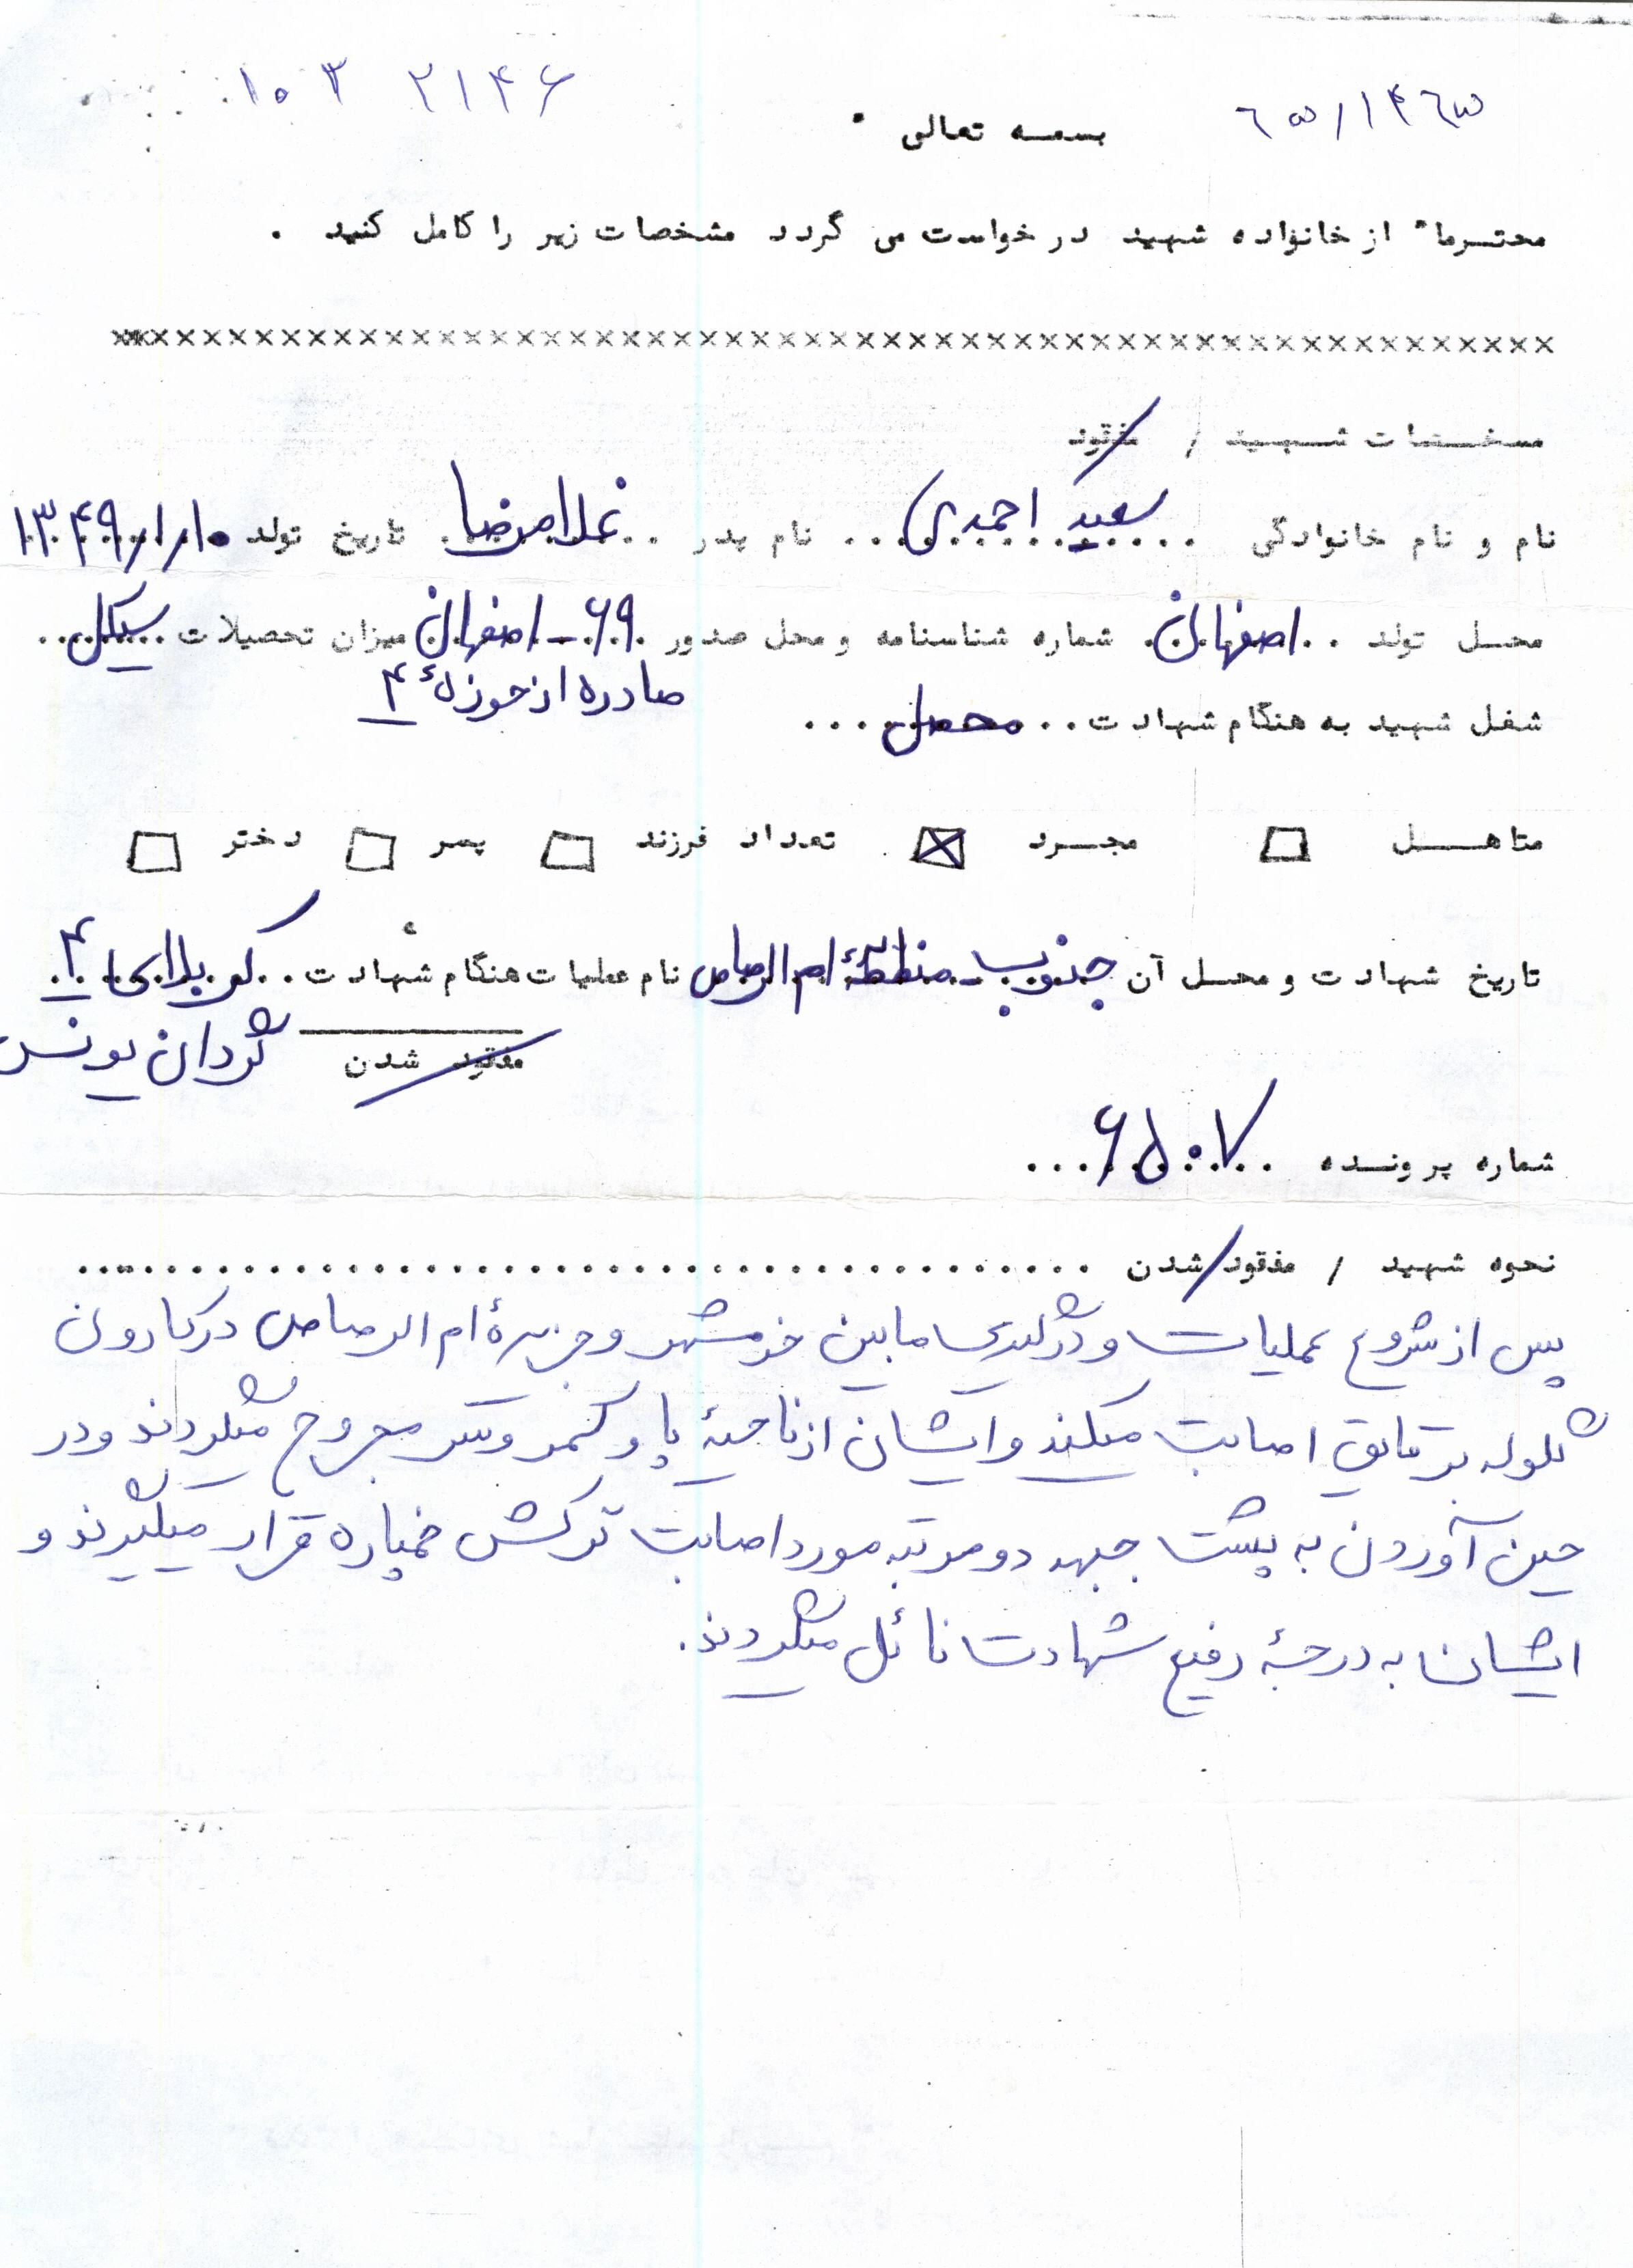 ۱۰۳ ۲۱۴۶
۶۵/۱۴۶۳
بسمه تعالی
محترما" از خانواده شهید درخواست می گردد مشخصات زیر را کامل کنید .
××××××××××××××××××××××××××××××××××××××××××××××××××××××
مشخصات شهید / مفقود
نام و نام خانوادگی سعید احمدی نام پدر غلامرضا تاریخ تولد ۱۳۴۹/۱/۱۰
محل تولد اصفهان شماره شناسنامه و محل صدور ۶۹ - اصفهان میزان تحصیلات سیکل
صادره از حوزهٔ ۴
شغل شهید به هنگام شهادت محصل
متاهل مجرد تعداد فرزند پسر دختر
تاریخ شهادت و محل آن جنوب - منطقهٔ ام الرصاص نام عملیات هنگام شهادت کربلای ۴
مفقود شدن گردان یونس
شماره پرونده ۶۵۰۷
نحوه شهید / مفقود شدن
پس از شروع عملیات و درگیری مابین خرمشهر و جزیرهٔ ام الرصاص در کارون
گلوله بر قایق اصابت میکند و ایشان از ناحیهٔ پا و کمر و سر مجروح میگردند و در
حین آوردن به پشت جبهه دو مرتبه مورد اصابت ترکش خمپاره قرار میگیرند و
ایشان به درجهٔ رفیع شهادت نائل میگردند.